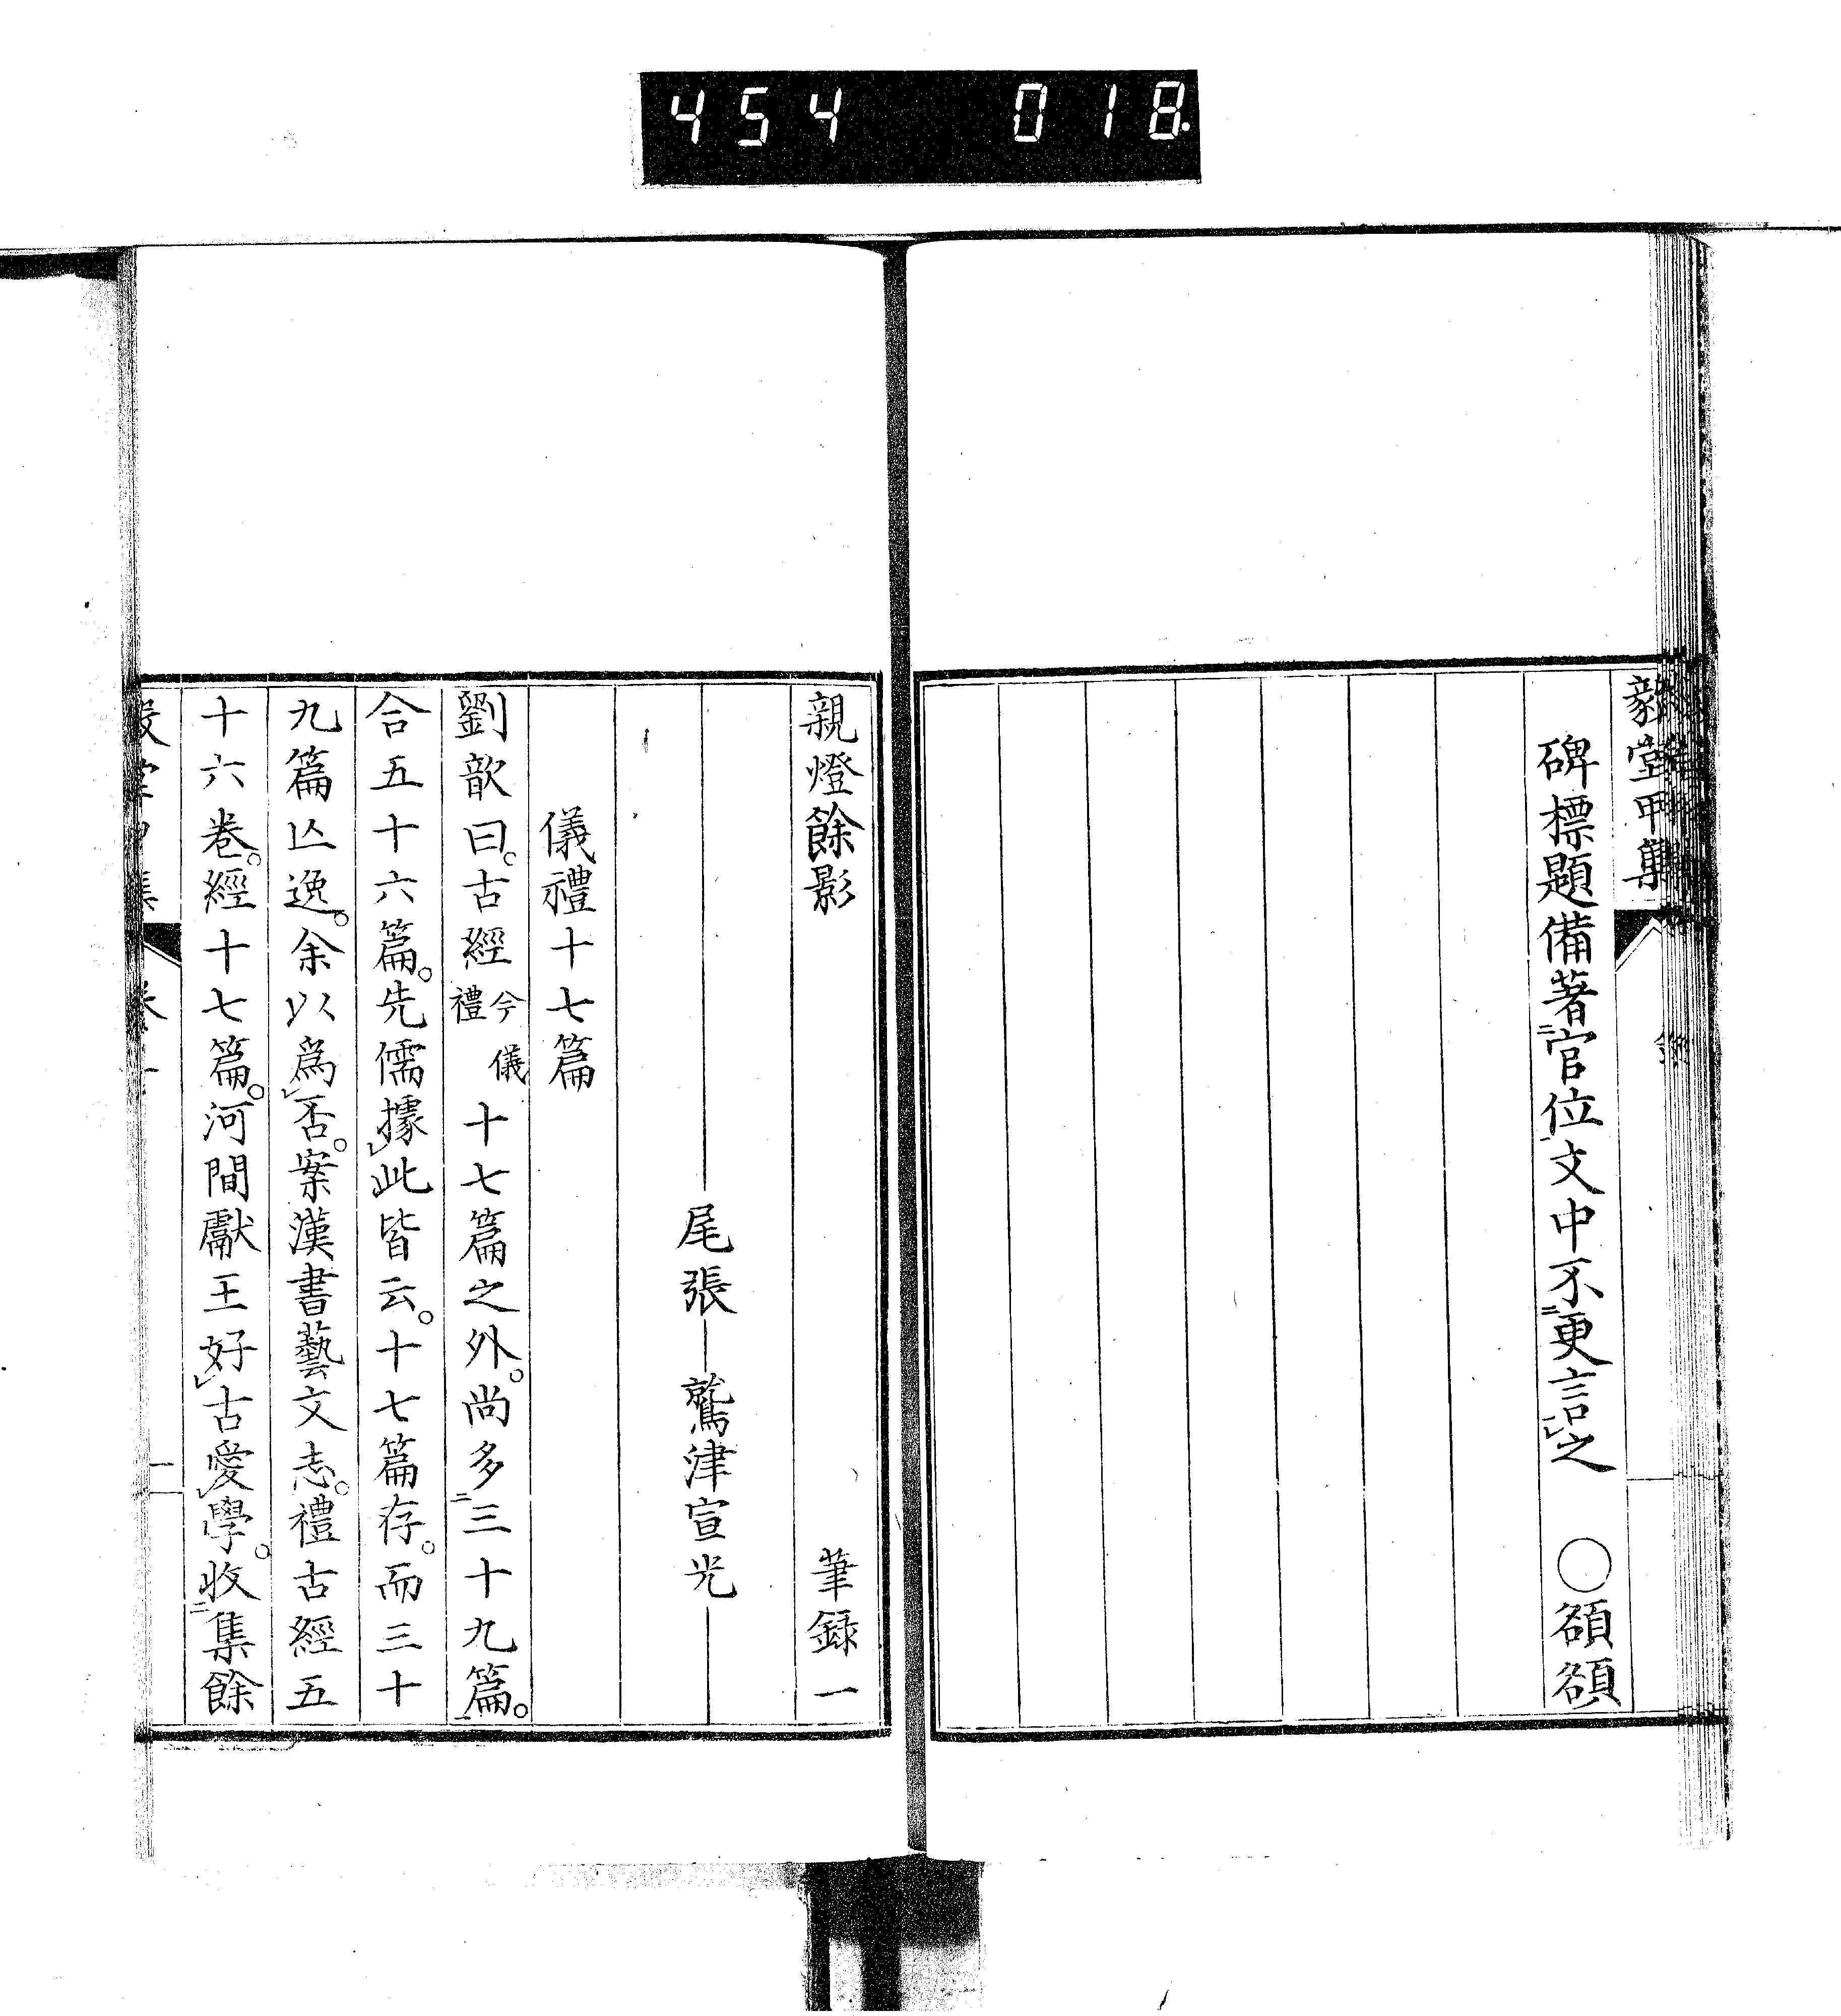 454 018
毅堂甲集
碑標題備著二官位一文中不二更言レ之 ○額額
親燈餘影 筆録一
尾張 鷲津宣光
儀禮十七篇
劉歆曰。古經今儀禮十七篇之外。尚多二三十九篇一。
合五十六篇。先儒據レ此皆云。十七篇存。而三十
九篇亾逸。余以爲レ否。案漢書藝文志。禮古經五
十六卷。經十七篇。河間獻王好レ古愛レ學。收二集餘